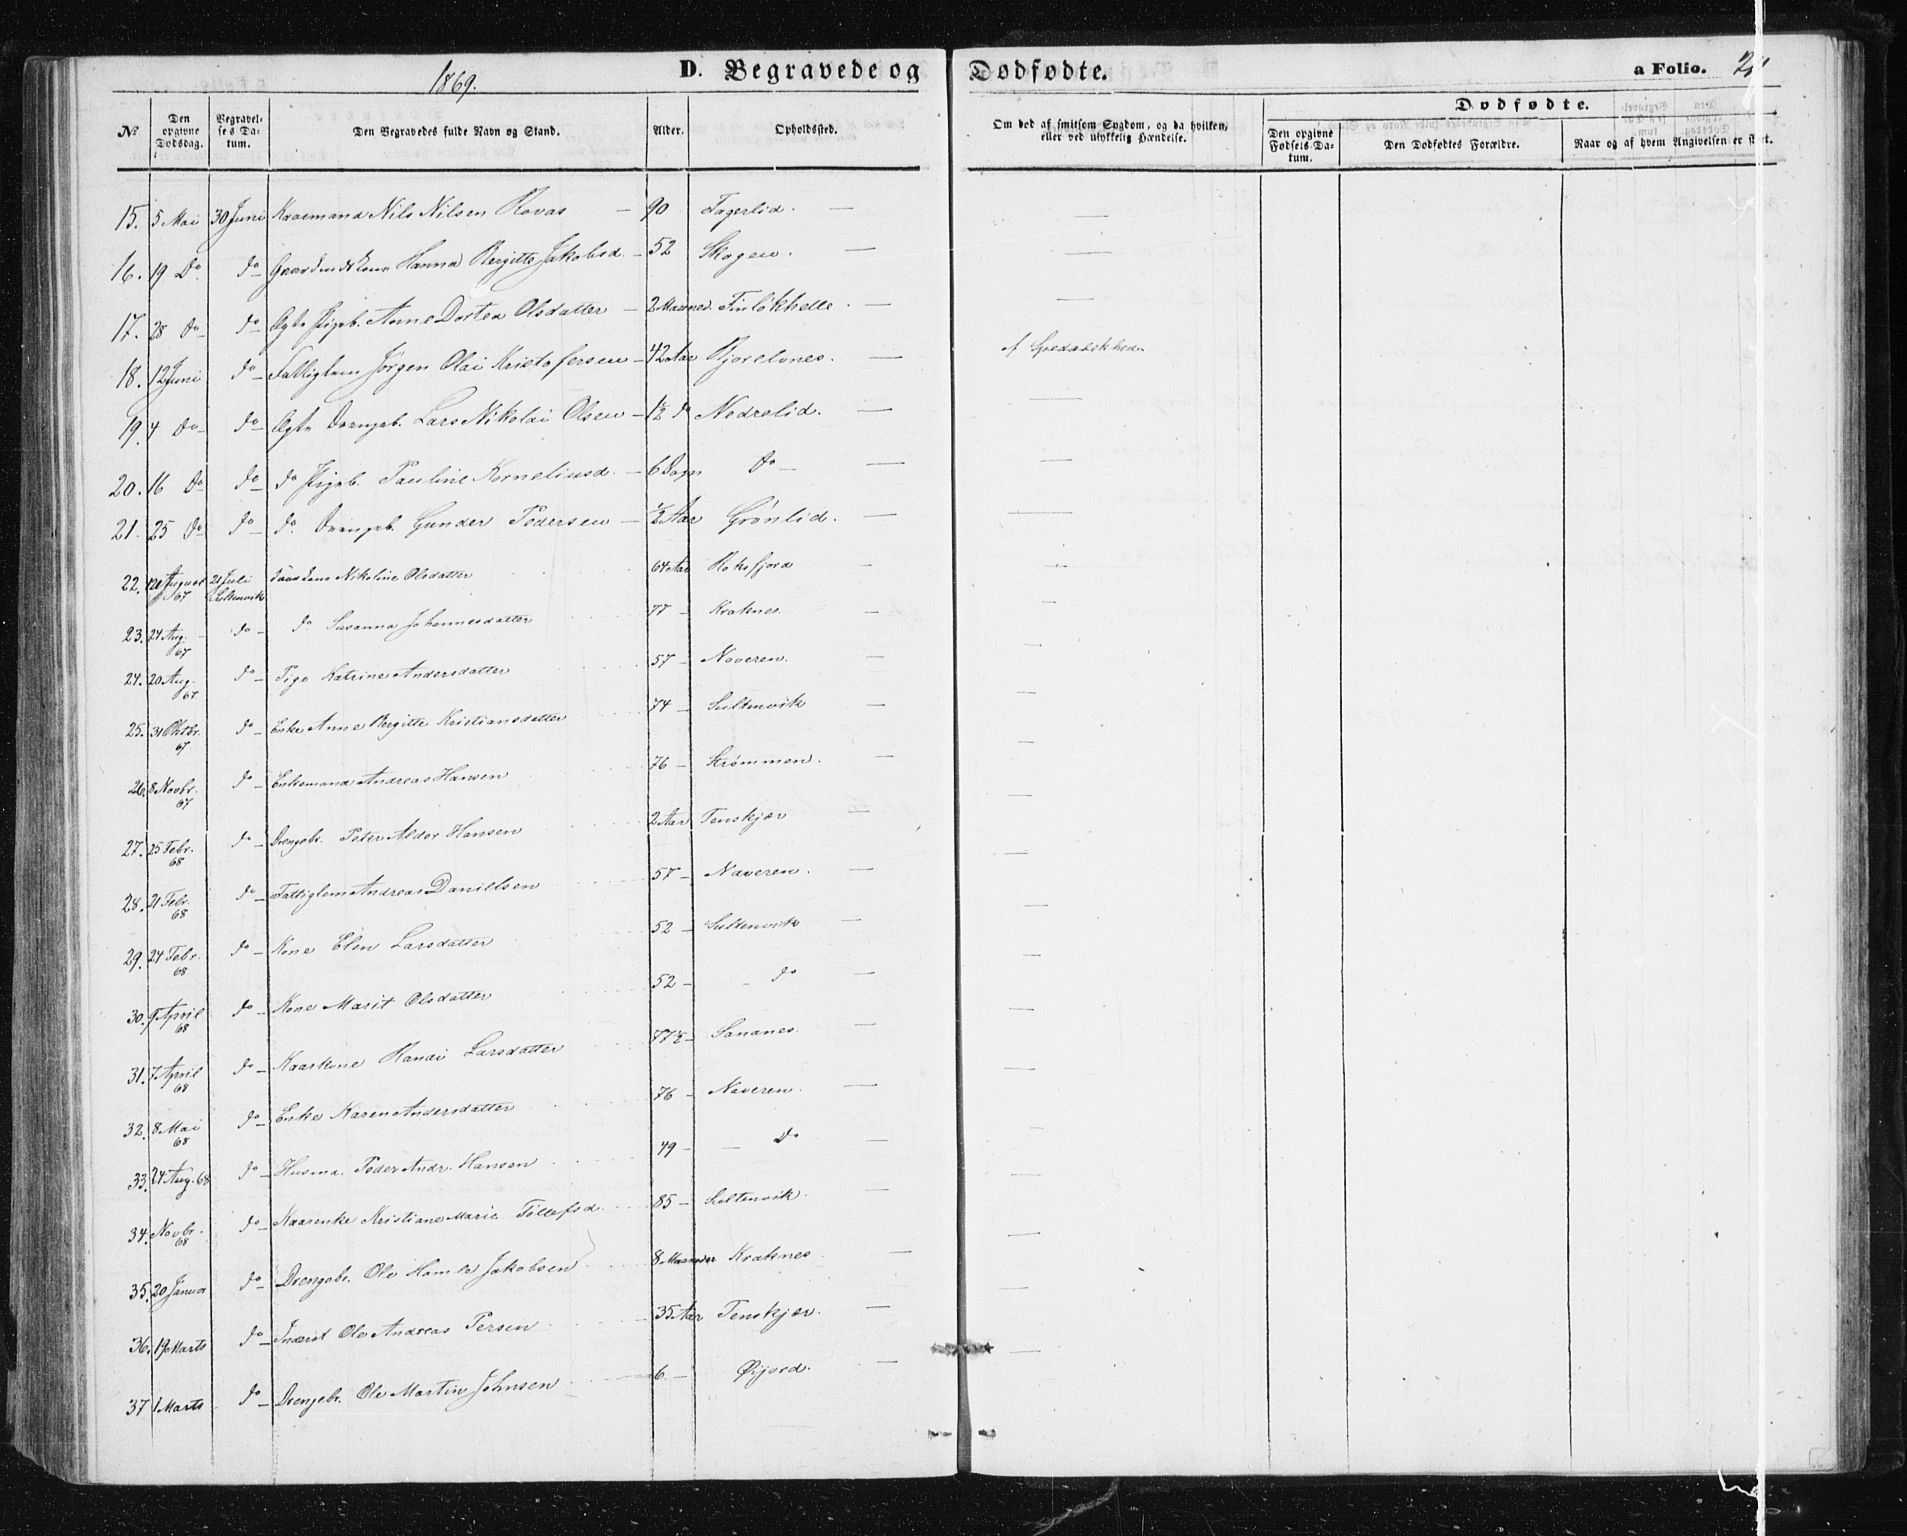 1869.
D. Begravede og Dødfødte.
a Folio.
Dødfødte.
No
Den opgivne Dødsdag.
Begravelses Datum.
Den Begravedes fulde Navn og Stand.
Alder.
Opholdssted.
Om død af smitsom Sygdom, og da hvilken, eller ved ulykkelig Hændelse.
Den opgivne Fødsels-Datum.
Den Dødfødtes Forældre.
Naar og af hvem Angivelsen er skeet.
15. 5 Mai 30 Juni Kaarmand Nils Nilsen Rovas — 90 Fagerlid. —
16. 19 Do do Hanna Bergitte Jakobsd. — 52 Skogen. —
17. 28 do do Ægte Pigeb. Anne Dortea Olsdatter — 2 Maaned. —
18. 12 Juni do Fattiglem Jørgen Olai Kristofersen — 42 Aar Bjorelvnes. — af Spedalskhed
19. 4 do do Ægte Drengeb. Lars Nikolai Olsen — 1½ do Nedrelid. —
20. 16 do do do Pigeb. Pauline Korneliusd. — 6 Dage do —
21. 25 do do do Drengeb. Gunder Pedersen — ½ Aar Grønlid. —
22. August 67 21 Juli Nikoline Olsdatter 64 Aar —
23. 24 Aug. 67 do do Susanna Johannesdatter 77 — Kraknes —
24. 20 Aug. 67 do Pige Katrine Andersdatter 57 — Naveren. —
25. 31 Oktbr. 67 do Enke Anne Bergitte Kristiansdatter 74 — Sultenvik —
26. 8 Novbr. 67 do Enkemand Andreas Hansen 76 — Strømmen. —
27. 25 Febr. 68 do Drengebr. Peter Aldor Hansen 2 Aar Tenskjær —
28. 21 Febr. 68 do Fattiglem Andreas Danielsen 57 — Naveren. —
29. 24 Febr. 68 do Kone Elen Larsdatter 52 — Sultenvik —
30. 9 April 68 do Kone Marit Olsdatter 52 — do —
31. 7 April 68 do Kaarkone Randi Larsdatter 77½ — Sananes —
32. 8 Mai 68 do Enke Karen Andersdatter 76 — Naveren. —
33. 24 Aug. 68 do Husma. Peder Andr. Hansen 49 — Do —
34. Novbr. 68 do Kaarenke Kristiane Marie Tollefsd. 85 — Sultenvik. —
35. 20 Januar do Drengebr. Ole Hamle Jakobsen 8 Maaneder Kraknes —
36. 19 Marts do Inderst Ole Andreas Persen 35 Aar Tenskjær. —
37 1 Marts do Drengebr. Ole Martin Johnsen 6 — Øijord. —